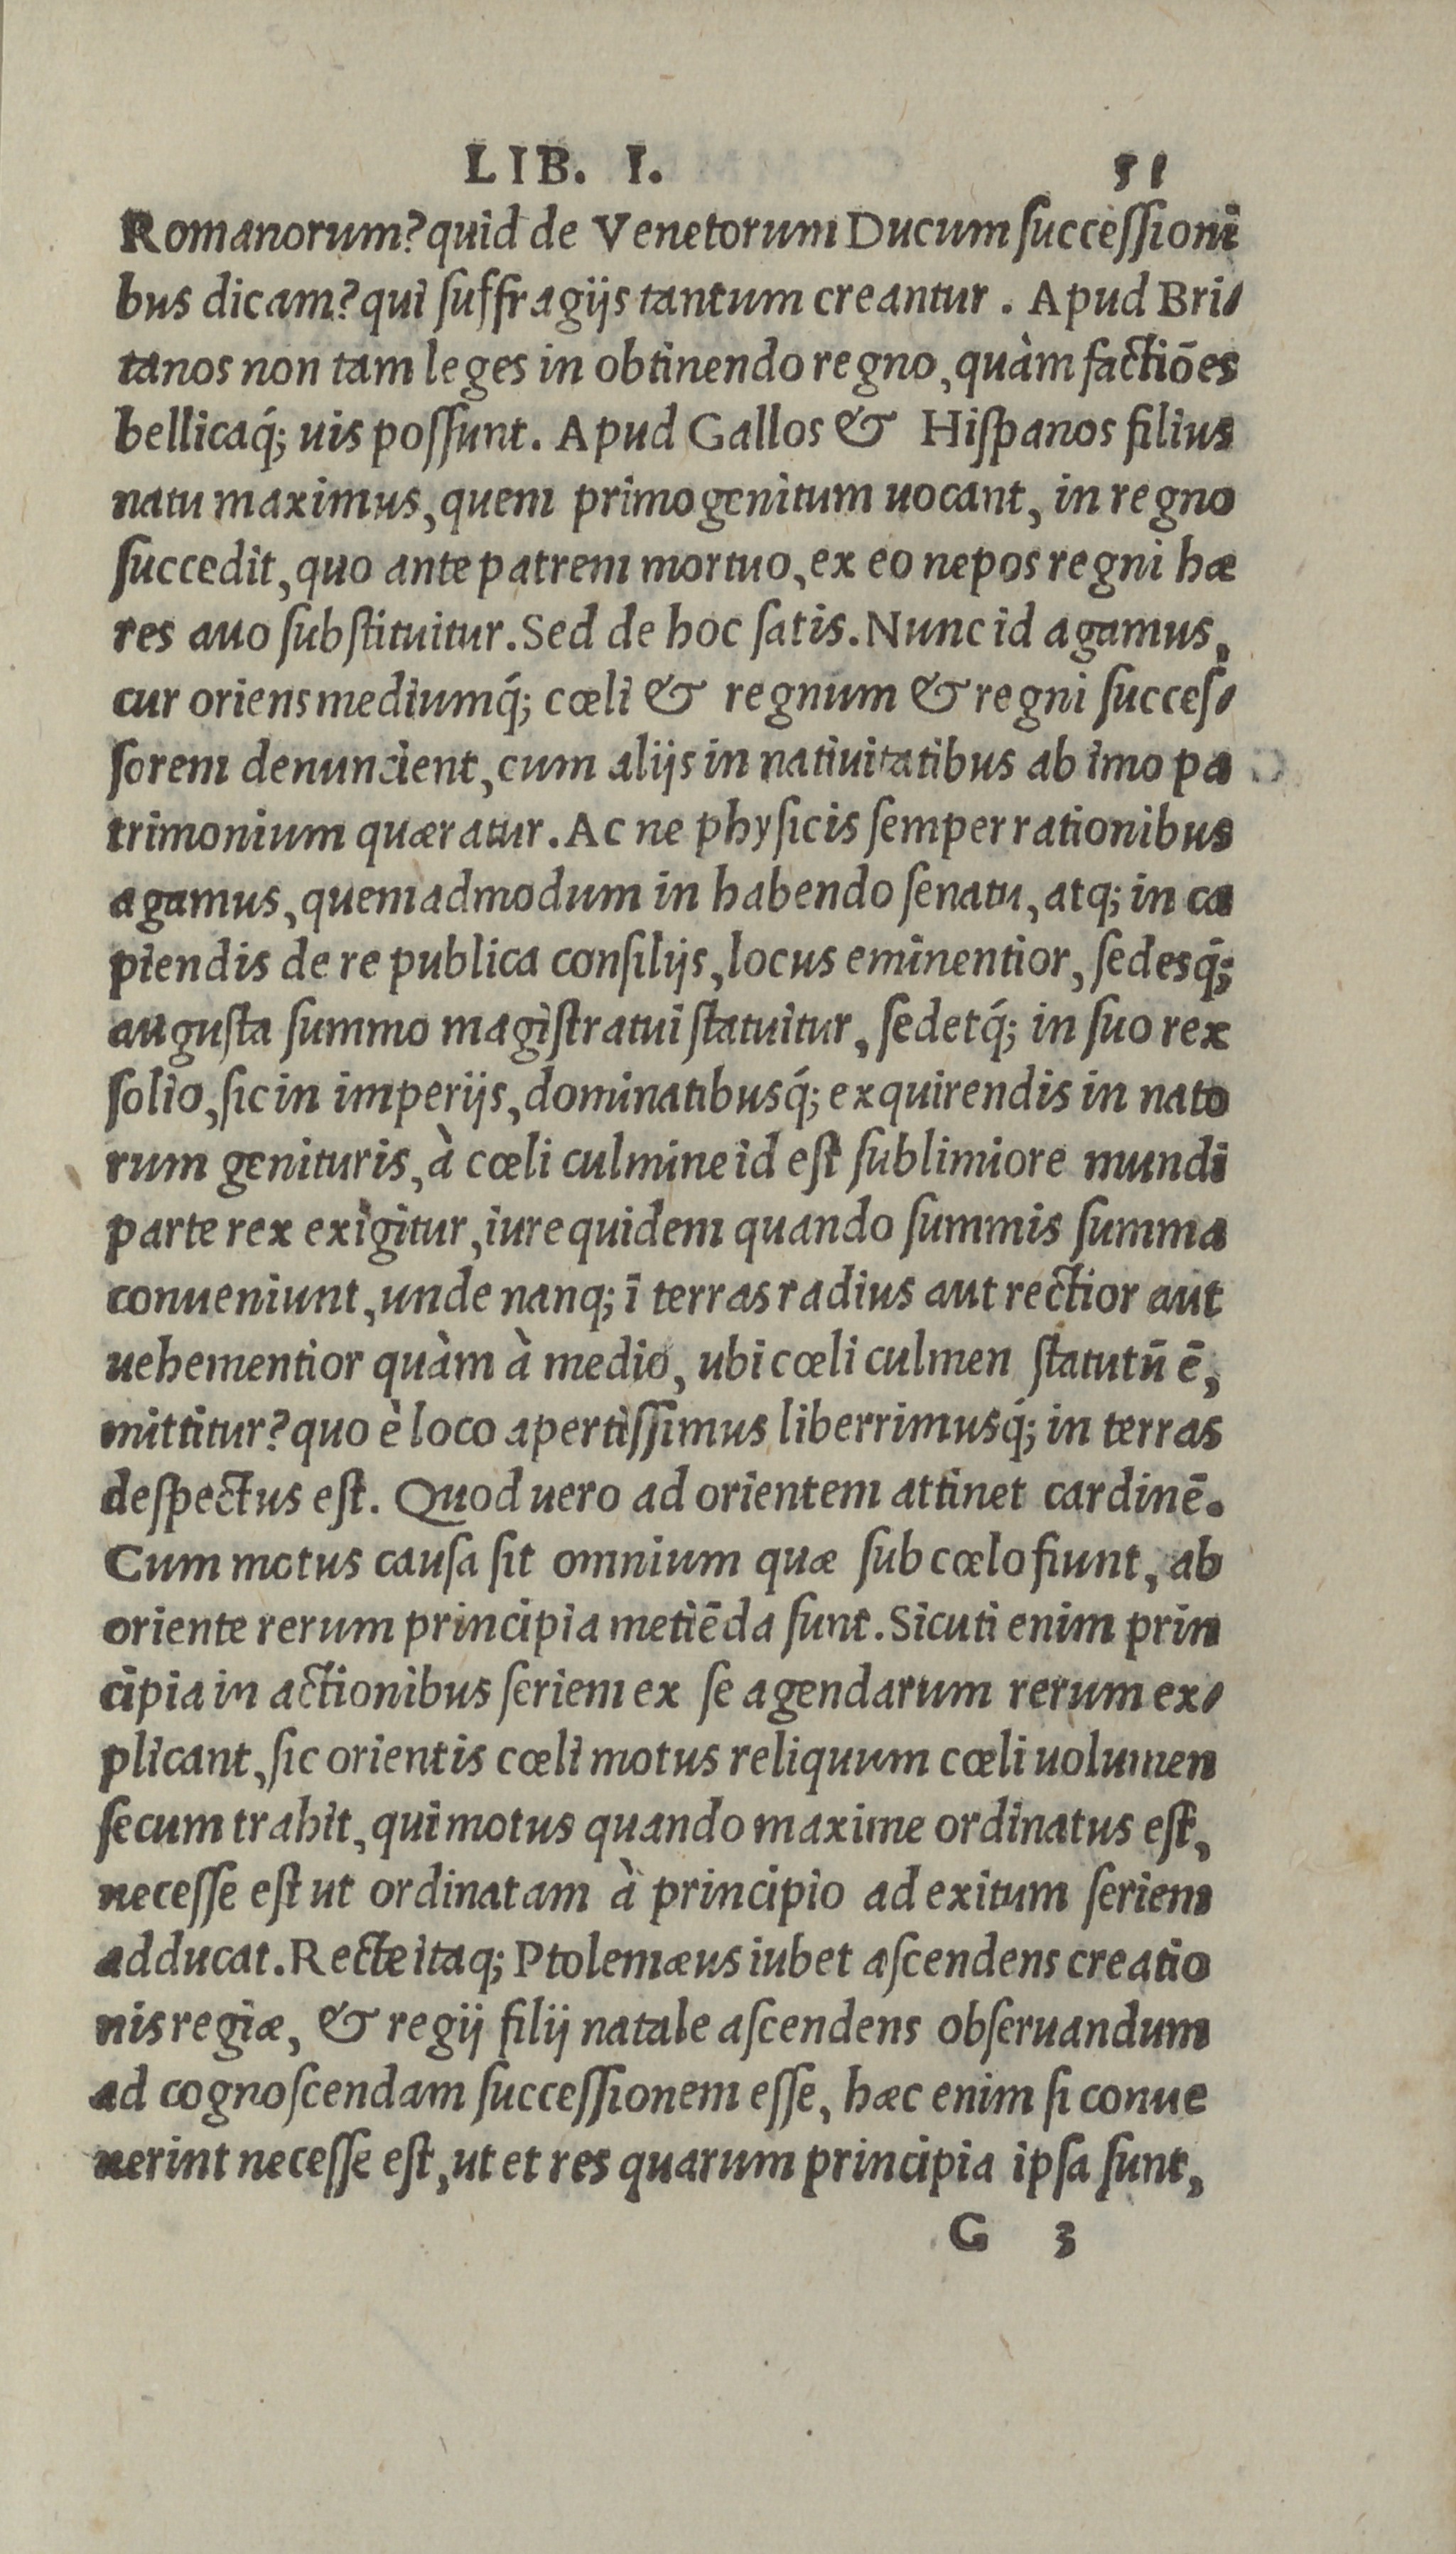 LIB. I. 51
Romanorum? quid de Venetorum Ducum ſucceſſioni
bus dicam? qui ſuffragijs tantum creantur. Apud Bri⸗
tanos non tam leges in obtinendo regno, quàm factiōes
bellicaq́; uis poſſunt. Apud Gallos & Hiſpanos filius
natu maximus, quem primogenitum uocant, in regno
ſuccedit, quo ante patrem mortuo, ex eo nepos regni hæ
res auo ſubſtituitur. Sed de hoc ſatis. Nunc id agamus,
cur oriens mediumq́; cœli & regnum & regni ſucceſ⸗
ſorem denuncient, cum alijs in natiuitatibus ab imo pa
trimonium quæratur. Ac ne phyſicis ſemper rationibus
agamus, quemadmodum in habendo ſenatu, atq; in ca
piendis de re publica conſilijs, locus eminentior, ſedesq́;
auguſta ſummo magiſtratui ſtatuitur, ſedetq́; in ſuo rex
ſolio, ſic in imperijs, dominatibusq́; exquirendis in nato
rum genituris, à cœli culmine id eſt ſublimiore mundi
parte rex exigitur, iure quidem quando ſummis ſumma
conueniunt, unde nanq; ī terras radius aut rectior aut
uehementior quàm à medio, ubi cœli culmen ſtatutū ē,
mittitur? quo è loco apertiſſimus liberrimusq́; in terras
deſpectus eſt. Quod uero ad orientem attinet cardinē.
Cum motus cauſa ſit omnium quæ ſub cœlo fiunt, ab
oriente rerum principia metiēda ſunt. Sicuti enim prin
cipia in actionibus ſeriem ex ſe agendarum rerum ex⸗
plicant, ſic orientis cœli motus reliquum cœli uolumen
ſecum trahit, qui motus quando maxime ordinatus eſt,
neceſſe eſt ut ordinatam à principio ad exitum ſeriem
adducat. Recte itaq; Ptolemæus iubet aſcendens creatio
nis regiæ, & regij filij natale aſcendens obſeruandum
ad cognoſcendam ſucceſſionem eſſe, hæc enim ſi conue
nerint neceſſe eſt, ut et res quarum principia ipſa ſunt,
G 3